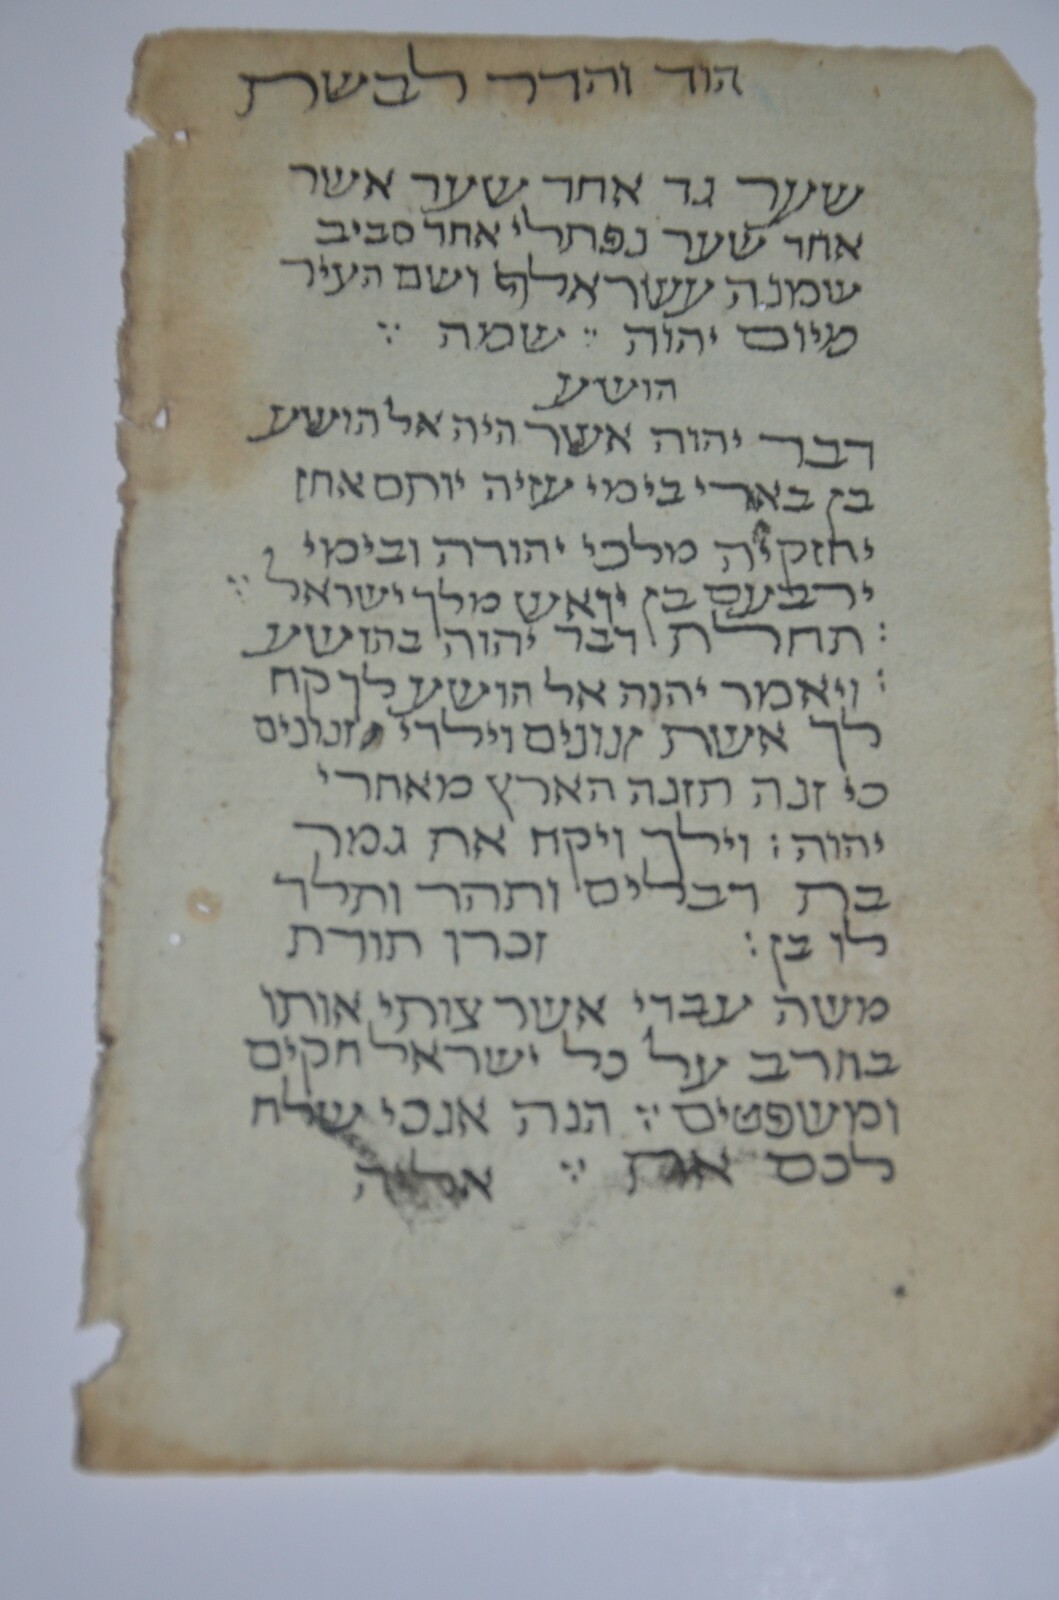 הוד והדר לבשת
שער גד אחד שער אשר
אחד שער נפתלי אחד סביב
שמנה עשר אלף ושם העיר
מיום יהוה ׃ שמה ׃
הושע
דבר יהוה אשר היה אל הושע
בן בארי בימי עזיה יותם אחז
יחזקיה מלכי יהודה ובימי
ירבעם בן יואש מלך ישראל ׃
: תחלת דבר יהוה בהושע
: ויאמר יהוה אל הושע לך קח
לך אשת זנונים וילדי זנונים
כי זנה תזנה הארץ מאחרי
יהוה : וילך ויקח את גמר
בת דבלים ותהר ותלד
לו בן : זכרן תורת
משה עבדי אשר צותי אותו
בחרב על כל ישראל חקים
ומשפטים ׃ הנה אנכי שלח
לכם את ׃